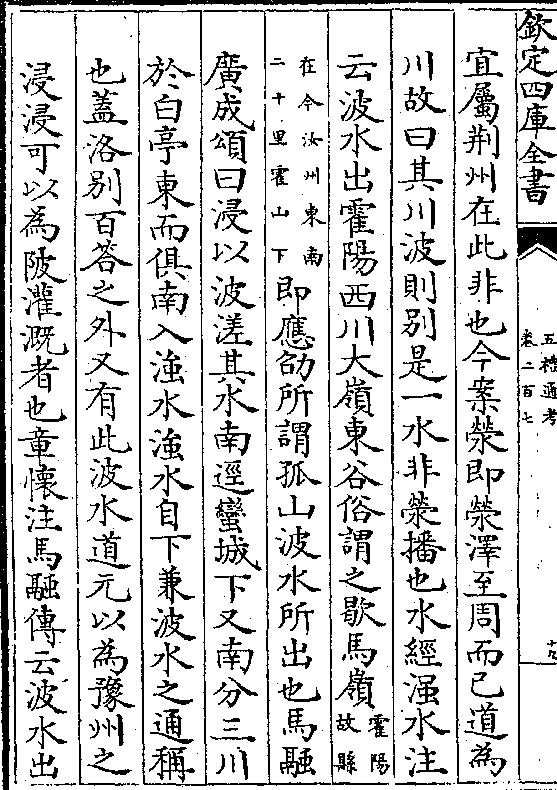 欽定四庫全書
五禮通考
卷二百七
十九
宜屬荆州在此非也今案滎即滎澤至周而已道為
川故曰其川波則别是一水非滎播也水經滍水注
云波水出霍陽西川大嶺東谷俗謂之歇馬嶺霍陽故縣
在今汝州東南二十里霍山下即應劭所謂孤山波水所出也馬融
廣成頌曰浸以波溠其水南逕蠻城下又南分三川
於白亭東而俱南入滍水滍水自下兼波水之通稱
也蓋洛别百荅之外又有此波水道元以為豫州之
浸浸可以為陂灌溉者也章懷注馬融傳云波水出